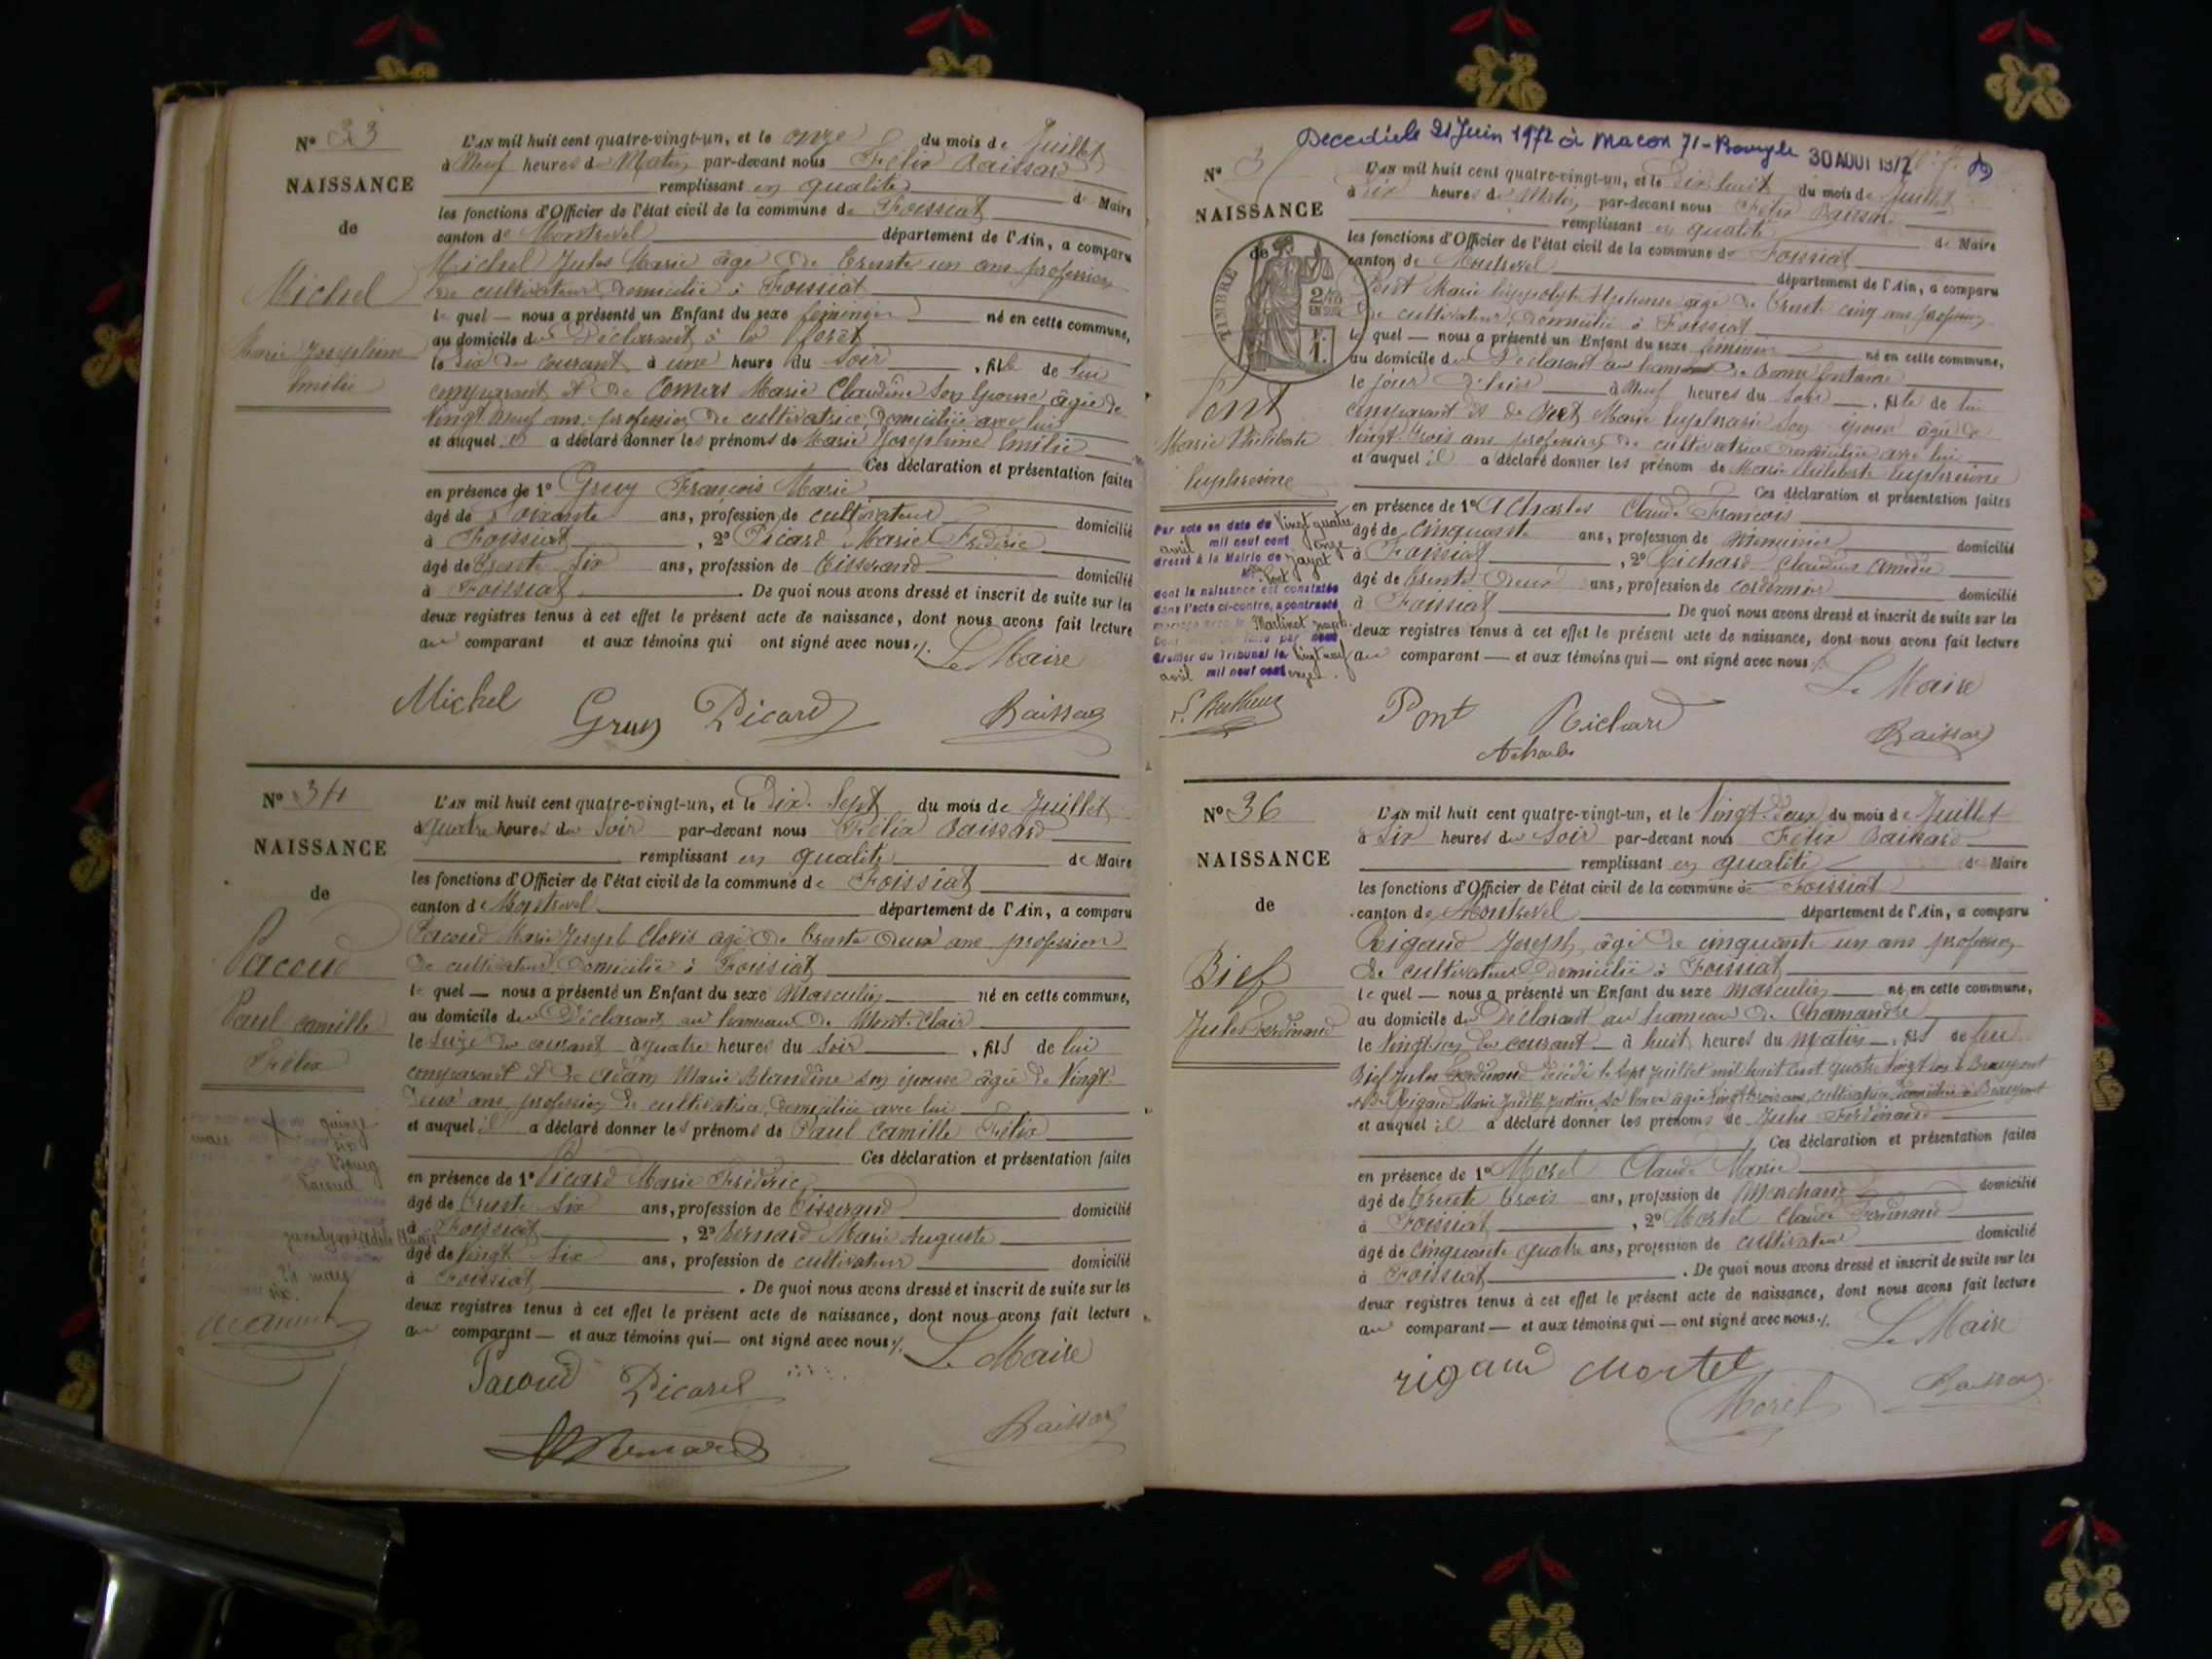 N° 33
NAISSANCE
de
Michel
Marie Josephine
Emilie
L'AN mil huit cent quatre-vingt-un, et le onze du mois de Juillet
à Neuf heures du Matin par-devant nous Félix Raissard
remplissant en qualité de Maire
les fonctions d'Officier de l'état civil de la commune de Foissiat
canton de Montrevel département de l'Ain, a comparu
Michel Jules Marie âgé de Trente un ans profession
de cultivateur domicilié à Foissiat
le quel — nous a présenté un Enfant du sexe féminin né en cette commune,
au domicile du Déclarant à la forêt
le dix du courant à une heure du soir, fille de lui
comparant et de Comers Marie Claudine son épouse âgée de
Vingt neuf ans profession de cultivatrice domiciliée avec lui
et auquel il a déclaré donner les prénoms de Marie Josephine Emilie
Ces déclaration et présentation faites
en présence de 1° François Marie
âgé de Soixante ans, profession de cultivateur domicilié
à Foissiat, 2° Picard Marie Frédéric
âgé de Trente Six ans, profession de Tisserand domicilié
à Foissiat. De quoi nous avons dressé et inscrit de suite sur les
deux registres tenus à cet effet le présent acte de naissance, dont nous avons fait lecture
au comparant et aux témoins qui ont signé avec nous ./.
Le Maire
Michel Picard Raissard
N° 34
NAISSANCE
de
Pacoud
Paul camille
Félix
L'AN mil huit cent quatre-vingt-un, et le Dix-Sept du mois de Juillet
à quatre heures du Soir par-devant nous Félix Raissard
remplissant en qualité de Maire
les fonctions d'Officier de l'état civil de la commune de Foissiat
canton de Montrevel département de l'Ain, a comparu
Pacoud Marie Joseph Clovis âgé de Trente deux ans profession
de cultivateur domicilié à Foissiat
le quel — nous a présenté un Enfant du sexe Masculin né en cette commune,
au domicile du Déclarant au hameau de Mont-Clair
le Seize du courant à quatre heures du Soir, fils de lui
comparant et de Adam Marie Blandine son épouse âgée de Vingt-
Deux ans profession de cultivatrice, domiciliée avec lui
et auquel il a déclaré donner les prénoms de Paul Camille Félix
Ces déclaration et présentation faites
en présence de 1° Picard Marie Frédéric
âgé de Trente Six ans, profession de Tisserand domicilié
à Foissiat, 2° Bernard Marie Auguste
âgé de Vingt-Six ans, profession de cultivateur domicilié
à Foissiat. De quoi nous avons dressé et inscrit de suite sur les
deux registres tenus à cet effet le présent acte de naissance, dont nous avons fait lecture
au comparant — et aux témoins qui — ont signé avec nous ./.
Le Maire
quinze
mars six
Bourg
Pacoud
24 mars
six
Pacoud Picard
Bernard Raissard
Decedée le 21 Juin 1972 à Macon 71 - 30 AOUT 1972
N° 3
NAISSANCE
de
TIMBRE
2/10
EN SUS
F.
1.
Pont
Marie Philiberte
Euphrosine
L'AN mil huit cent quatre-vingt-un, et le Dix huit du mois de Juillet
à Six heures du Matin par-devant nous Félix Raissard
remplissant en qualité de Maire
les fonctions d'Officier de l'état civil de la commune de Foissiat
canton de Montrevel département de l'Ain, a comparu
Pont Marie hippolyte Alphonse âgé de Trente cinq ans profession
de cultivateur, domicilié à Foissiat
le quel — nous a présenté un Enfant du sexe féminin né en cette commune,
au domicile du Déclarant au hameau de Bonne fontaine
le jour d'hier à Neuf heures du Soir, fille de lui
comparant et de Marie Euphrasie son épouse âgée de
Vingt-Trois ans profession de cultivatrice domiciliée avec lui
et auquel il a déclaré donner les prénom de Marie Philiberte Euphrosine
Ces déclaration et présentation faites
en présence de 1° Acharles Claude François
âgé de Cinquante ans, profession de Menuisier domicilié
à Foissiat, 2° Richard Claudius Amédée
âgé de Trente Deux ans, profession de cordonnier domicilié
à Foissiat De quoi nous avons dressé et inscrit de suite sur les
deux registres tenus à cet effet le présent acte de naissance, dont nous avons fait lecture
au comparant — et aux témoins qui — ont signé avec nous ./.
Le Maire
Par acte en date du Vingt quatre
avril mil neuf cent onze
dressé à la Mairie de Jayat
Pont
dont la naissance est constatée
dans l'acte ci-contre, a contracté
mariage avec le Martinet Joseph.
Greffier du Tribunal le Vingt neuf
avril mil neuf cent onze.
Pont Richard
Acharles Raissard
N° 36
NAISSANCE
de
Bief
Jules Ferdinand
L'AN mil huit cent quatre-vingt-un, et le Vingt-Deux du mois de Juillet
à Six heures du Soir par-devant nous Félix Raissard
remplissant en qualité de Maire
les fonctions d'Officier de l'état civil de la commune de Foissiat
canton de Montrevel département de l'Ain, a comparu
Rigaud Joseph, âgé de cinquante un ans profession
de cultivateur domicilié à Foissiat
le quel — nous a présenté un Enfant du sexe masculin né en cette commune,
au domicile du Déclarant au hameau de Chamandre
le Vingt-un du courant à huit heures du matin, fils de feu
Bief Jules Ferdinand Décédé le Sept Juillet mil huit cent quatre Vingt un à Beaupont
et de Rigaud Marie Judith Justine, sa Veuve âgée Vingt trois ans, cultivatrice, domiciliée à Beaupont
et auquel il a déclaré donner les prénoms de Jules Ferdinand
Ces déclaration et présentation faites
en présence de 1° Morel Claude Marie
âgé de Trente Trois ans, profession de Marchand domicilié
à Foissiat, 2° Mortel Claude Ferdinand
âgé de Cinquante quatre ans, profession de cultivateur domicilié
à Foissiat. De quoi nous avons dressé et inscrit de suite sur les
deux registres tenus à cet effet le présent acte de naissance, dont nous avons fait lecture
au comparant — et aux témoins qui — ont signé avec nous ./.
Le Maire
rigaud Mortel
Morel Raissard